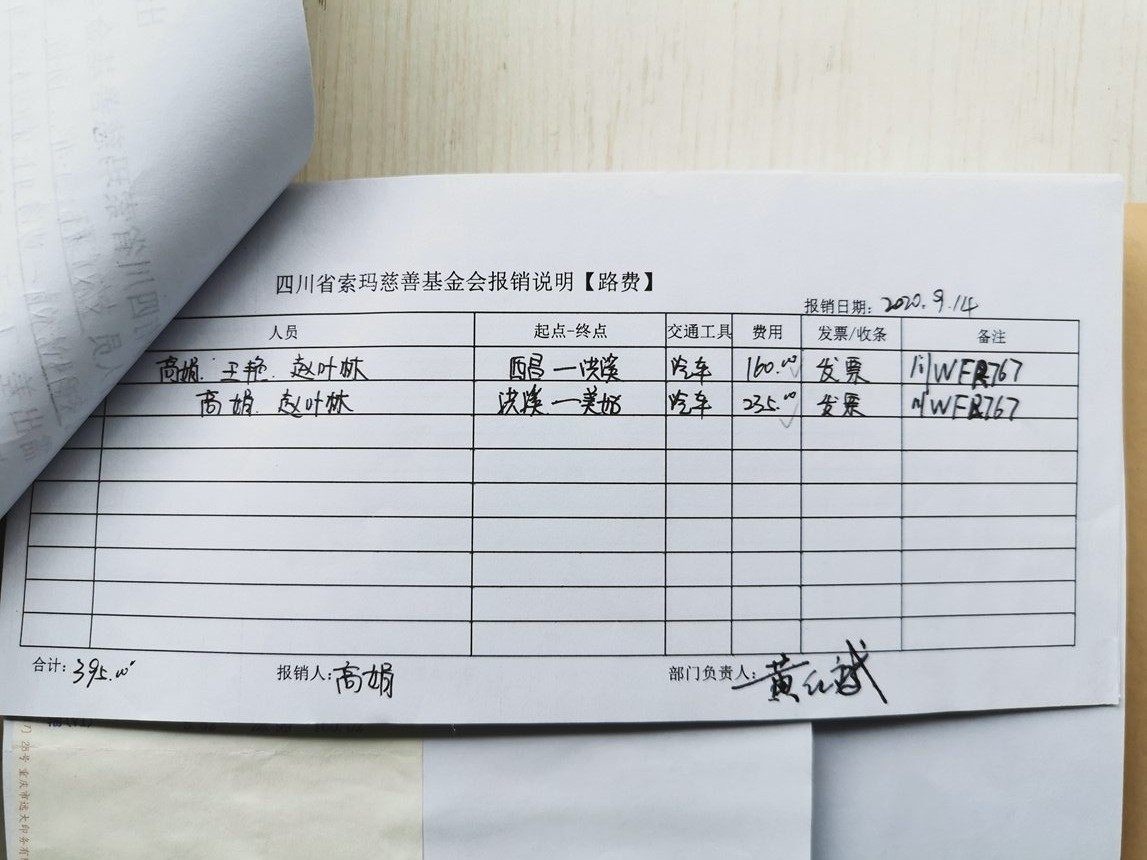 四川省索玛慈善基金会报销说明【路费】
报销日期：2020.9.14
人员 起点-终点 交通工具 费用 发票/收条 备注
高娟. 王艳. 赵叶林 西昌—洪溪 汽车 160.00 发票 川WFR767
高娟. 赵叶林 洪溪—美姑 汽车 235.00 发票 川WFR767
合计：395.00 报销人：高娟 部门负责人：黄红斌
28号 重庆市远大印务有